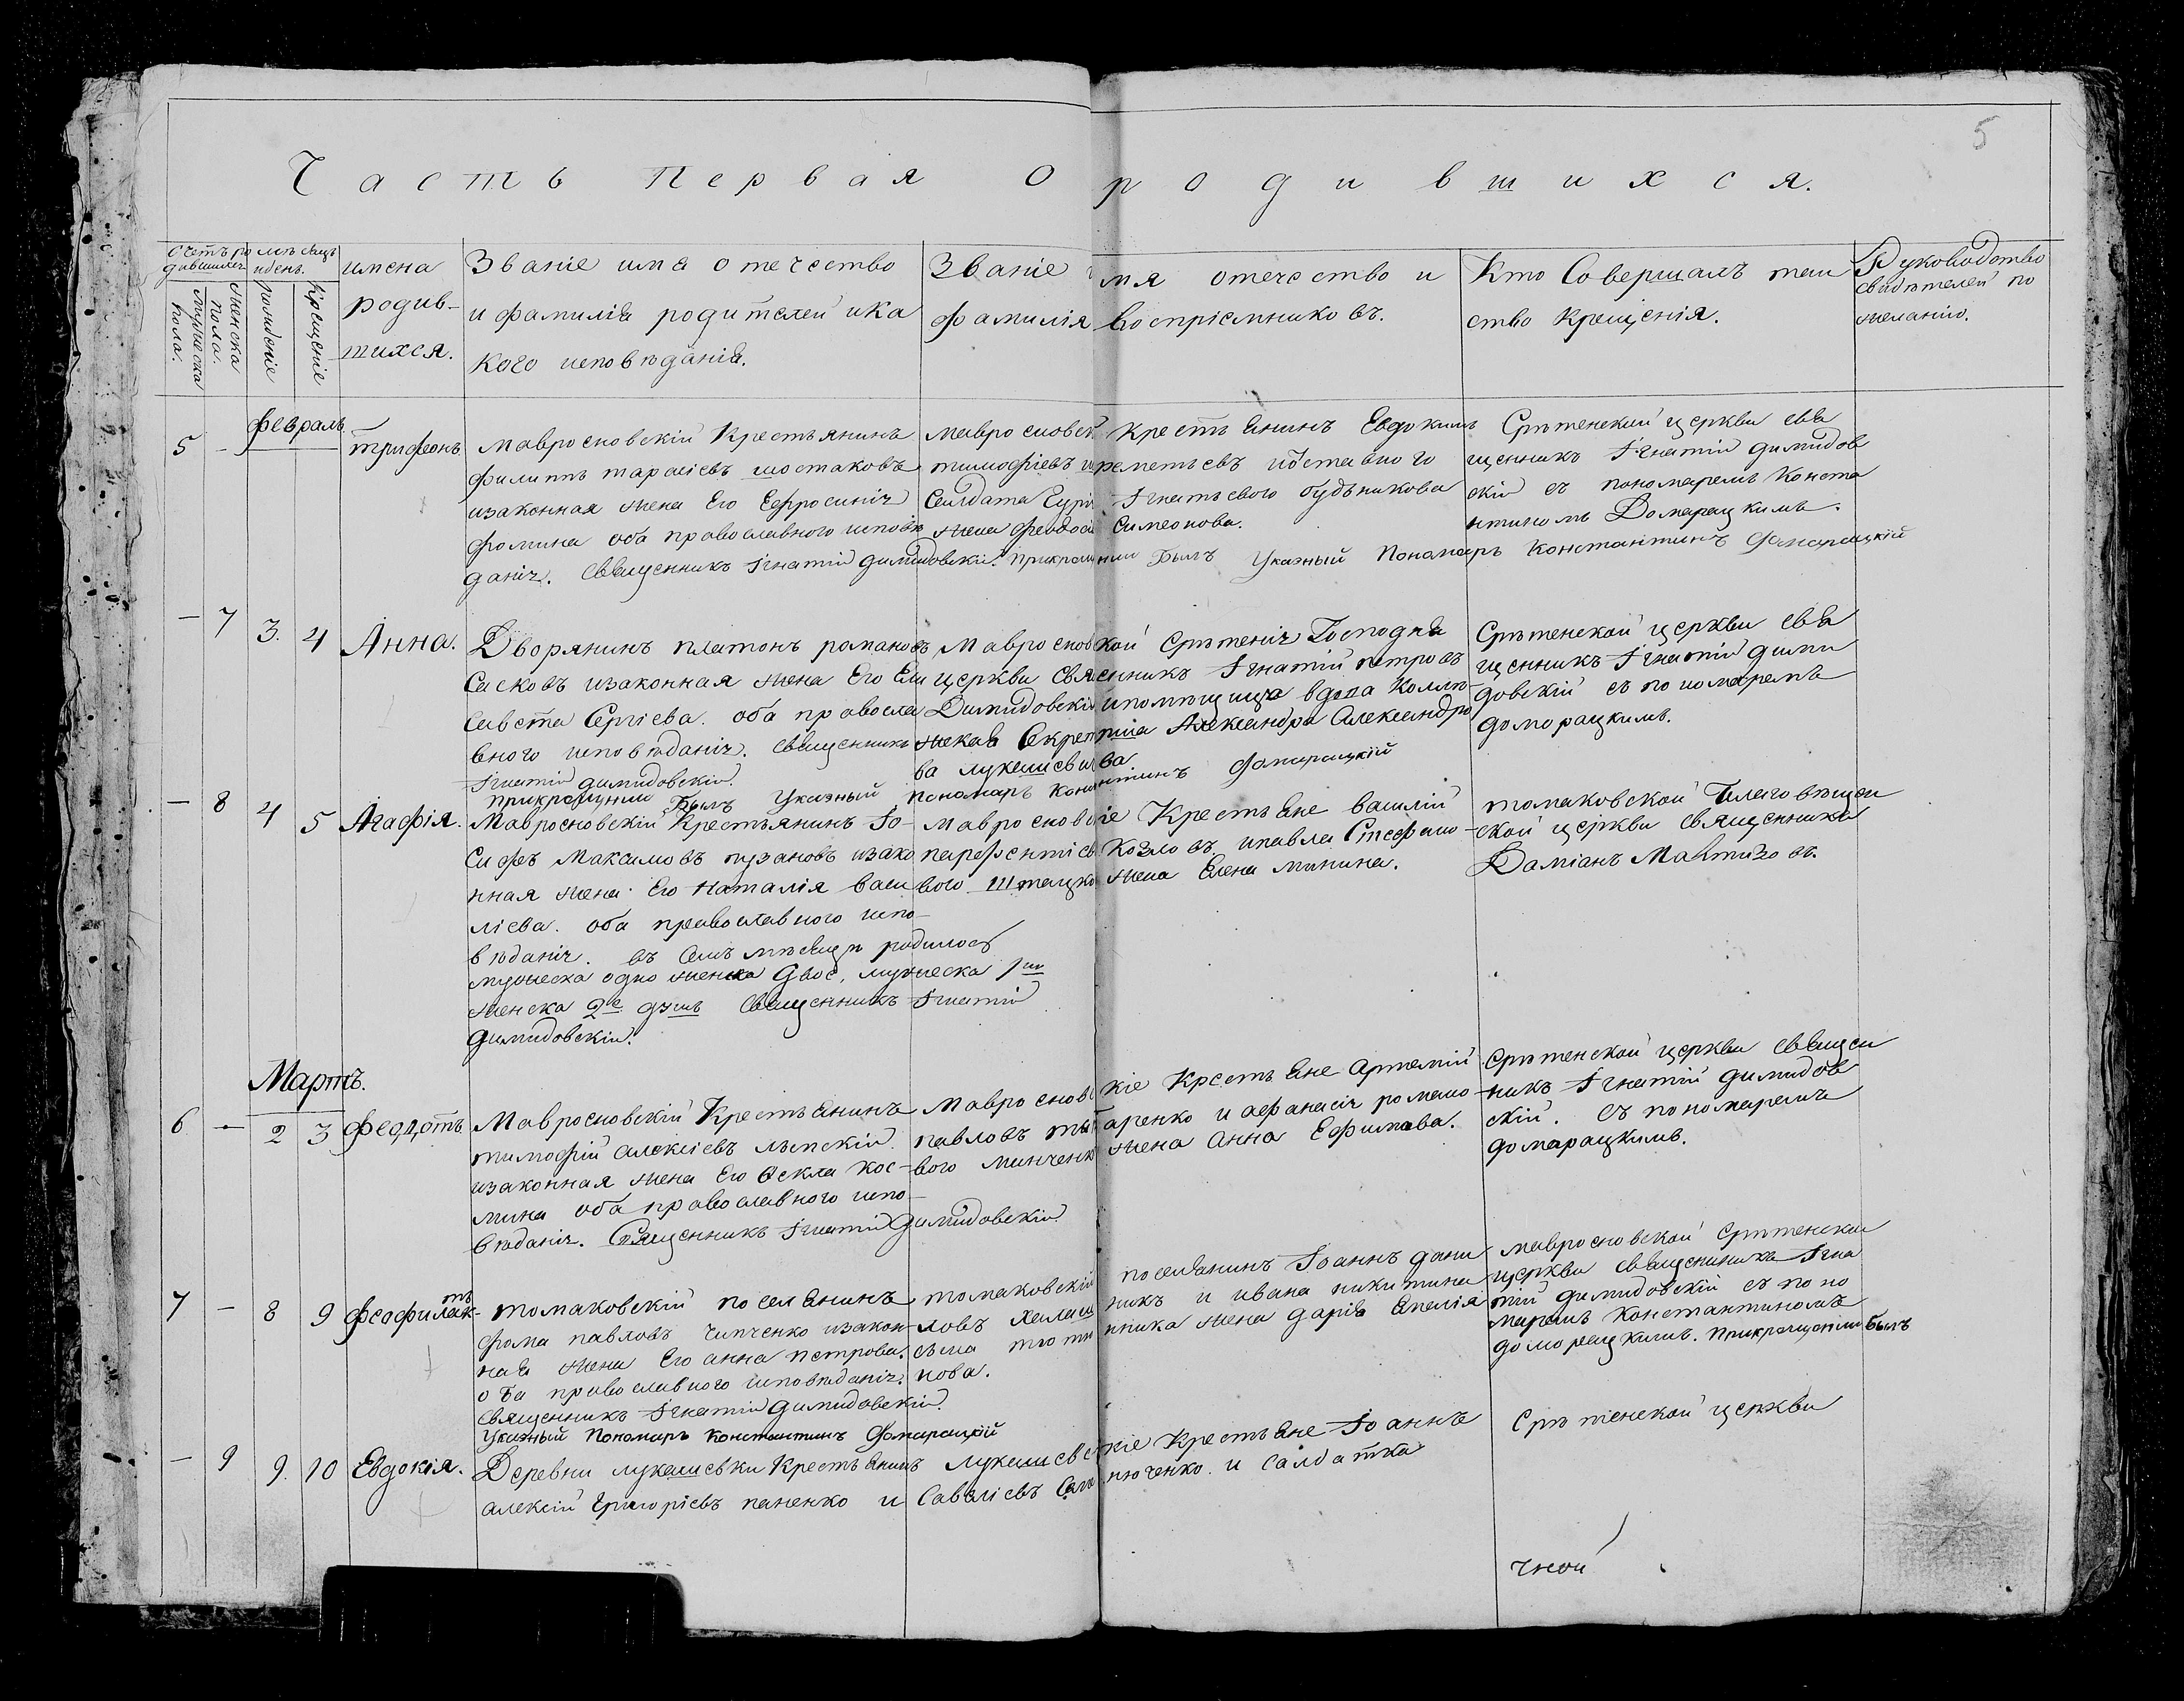 5
Часть Первая О родившихся.
Счетъ ро
дившихся
мѣсяцъ
и день.
Мужеска
пола.
Женска
пола.
рожденіе
Крещеніе
имена
родив-
шихся.
Званіе имя отечество
и фамилія родителей и ка
кого исповѣданія.
Званіе имя отечество и
фамилія воспріемниковъ.
Кто Совершалъ таи
ство Крещенія.
Руководство
свидѣтелей по
желанію.
февраль
5 - трифонъ
мавросновскій Крестьянинъ
филиппъ тарасіевъ шостаковъ
изаконная жена Его Ефросинія
фомина оба православного исповѣ
данія. Священникъ Ігнатій димидовскій. Прикрещеніи Былъ Указный Пономарь Константинъ Домарацкій
мавросновскій Крестьянинъ Евдокимъ
тимофіевъ шереметьевъ иотставного
Салдата Ігнатьевого будъникова
жена Феодосія Симеонова.
Срѣтенской церкви свя
щенникъ Ігнатій димидов
скій съ пономаремъ Конста
нтиномъ Домарацкимъ.
- 7 3. 4 Анна.
Дворянинъ платонъ романовъ
Сасковъ изаконная жена Его Ели
савета Сергіева. оба правосла
вного исповѣданія. Священникъ
Ігнатій димидовскій.
Мавросновской Срѣтенія Господня
церкви Священникъ Ігнатій петровъ
Димидовскій ипомѣщица вдова Коллѣ-
жская Секретарша Александра Александро
ва лукашевичева
Срѣтенской церкви свя
щенникъ Ігнатій дими
довскій съ пономаремъ
доморацкимъ.
прикрещеніи Былъ Указный Пономарь Константинъ Домарацкій
- 8 4 5 Агафія.
Мавросновскій Крестьянинъ Іо-
сифъ Максимовъ пузановъ изако
нная жена Его Наталія васи
ліева. оба православного испо-
вѣданія. въ Семъ мѣсяцѣ родилось
мужеска одно женска двое, мужеска 1
женска 2е душъ Священникъ Ігнатій
димидовскій.
Мавросновскіе Крестьяне василій
парфентіевъ Козловъ ипавла Стефано-
вого жена Елена минина.
томаковской Благовѣщен
ской церкви Священника
Даміанъ Мантизовъ.
Мартъ.
6 - 2 3 федотъ
Мавросновскій Крестьянинъ
тимофій алексіевъ лѣпскій
изаконная жена Его Ѳекла Кос-
мина оба православного испо-
вѣданія. Священникъ Ігнатій димидовскій
Мавросновскіе Крестьяне Артемій
павловъ и афанасія романо-
вого минченка жена Анна Ефимова.
Срѣтенской церкви Священ
никъ Ігнатій димидов
скій. Съ пономаремъ
домарацкимъ.
7 - 8 9 феофилак-
тъ
томаковскій поселянинъ
фома павловъ Чипченко изакон-
ная жена Его анна петрова.
оба православного исповѣданія.
Священникъ Ігнатій димидовскій.
Указный Пономарь Константинъ Домарацкій
томаковскій поселянинъ Іоаннъ дани
ловъ и ивана никитина
сына жена дарія Емелія
нова.
мавросновской Срѣтенской
церкви Священника Ігна
тій димидовскій съ поно
маремъ Константиномъ
доморацкимъ. Прикрещеніи былъ
- 9 9. 10 Евдокія.
Деревни лукашевки Крестьянинъ
алексій Григоріевъ паненко и
лукашевскіе Крестьяне Іоаннъ
Савеліевъ и Салдатка
Срѣтенской церкви
чной